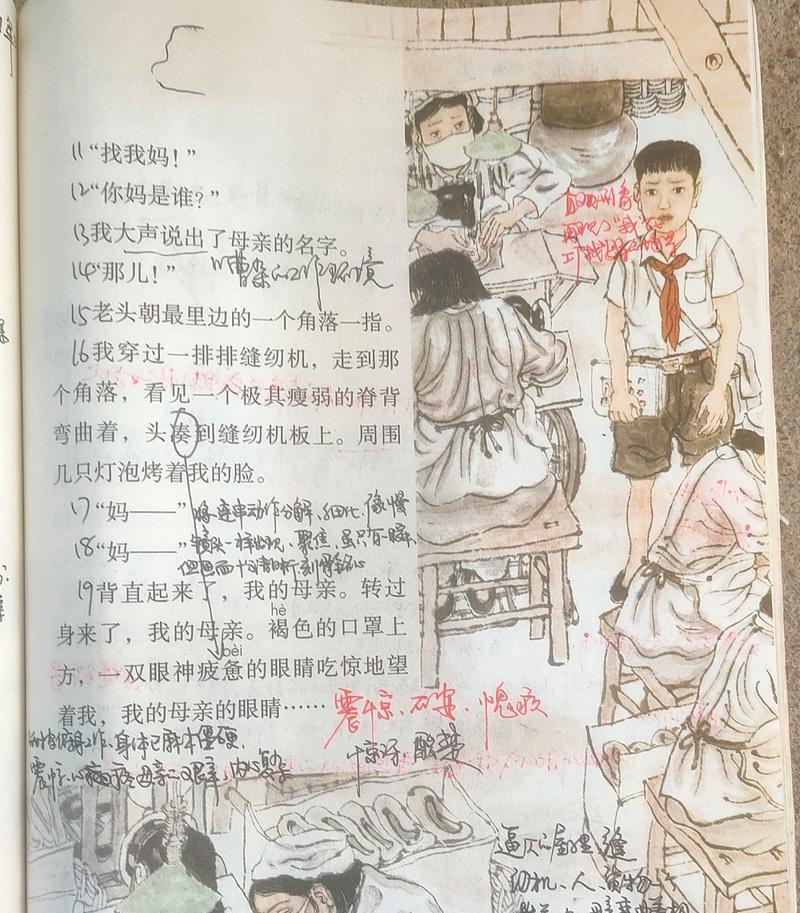 11“找我妈！”
12“你妈是谁？”
13我大声说出了母亲的名字。
14“那儿！”
曹杂的工作环境
15老头朝最里边的一个角落一指。
16我穿过一排排缝纫机，走到那
个角落，看见一个极其瘦弱的脊背
弯曲着，头凑到缝纫机板上。周围
几只灯泡烤着我的脸。
17“妈——”
将连串动作分解、细化，像慢
18“妈——”
镜头一样出现、聚焦，虽只有一瞬，
但画面十分清晰，刻骨铭心
19背直起来了，我的母亲。转过
hè
身来了，我的母亲。褐色的口罩上
bèi
方，一双眼神疲惫的眼睛吃惊地望
着我，我的母亲的眼睛……
震惊、心疼、愧疚
工作、身体已麻木僵硬
惊讶 酸楚
震惊、心疼母亲的艰辛 内心复杂
逼仄的屋里，缝
纫机、人、货物